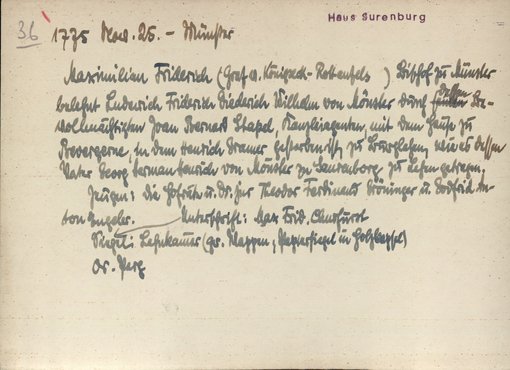 Haus Surenburg
36
1775 Nov. 25. - Münster
Maximilian Friderich (Graf v. Königseck-Rottenfels) Bischof zu Münster
belehnt Luderich Friderich Diederich Wilhelm von Mönster durch dessen Be-
vollmächtigten Joan Bernard Stapel, Kanzleiagenten, mit dem Hause zu
Bevergerne, in dem Henrich Kramer gestorben ist, zu Burglehen, wie es dessen
Vater Georg Herman Henrich von Mönster zu Surenborg zu Lehen getragen.
Zeugen: die Hofräte u. Dr. jur Theodor Ferdinand Bröninger u. Godfrid An-
ton Zurgeler. Unterschrift: Max Frid. Churfürst
Siegel: Lehnkamer (gr. Wappen, Papiersiegel in Holzkapsel)
Or. Perg